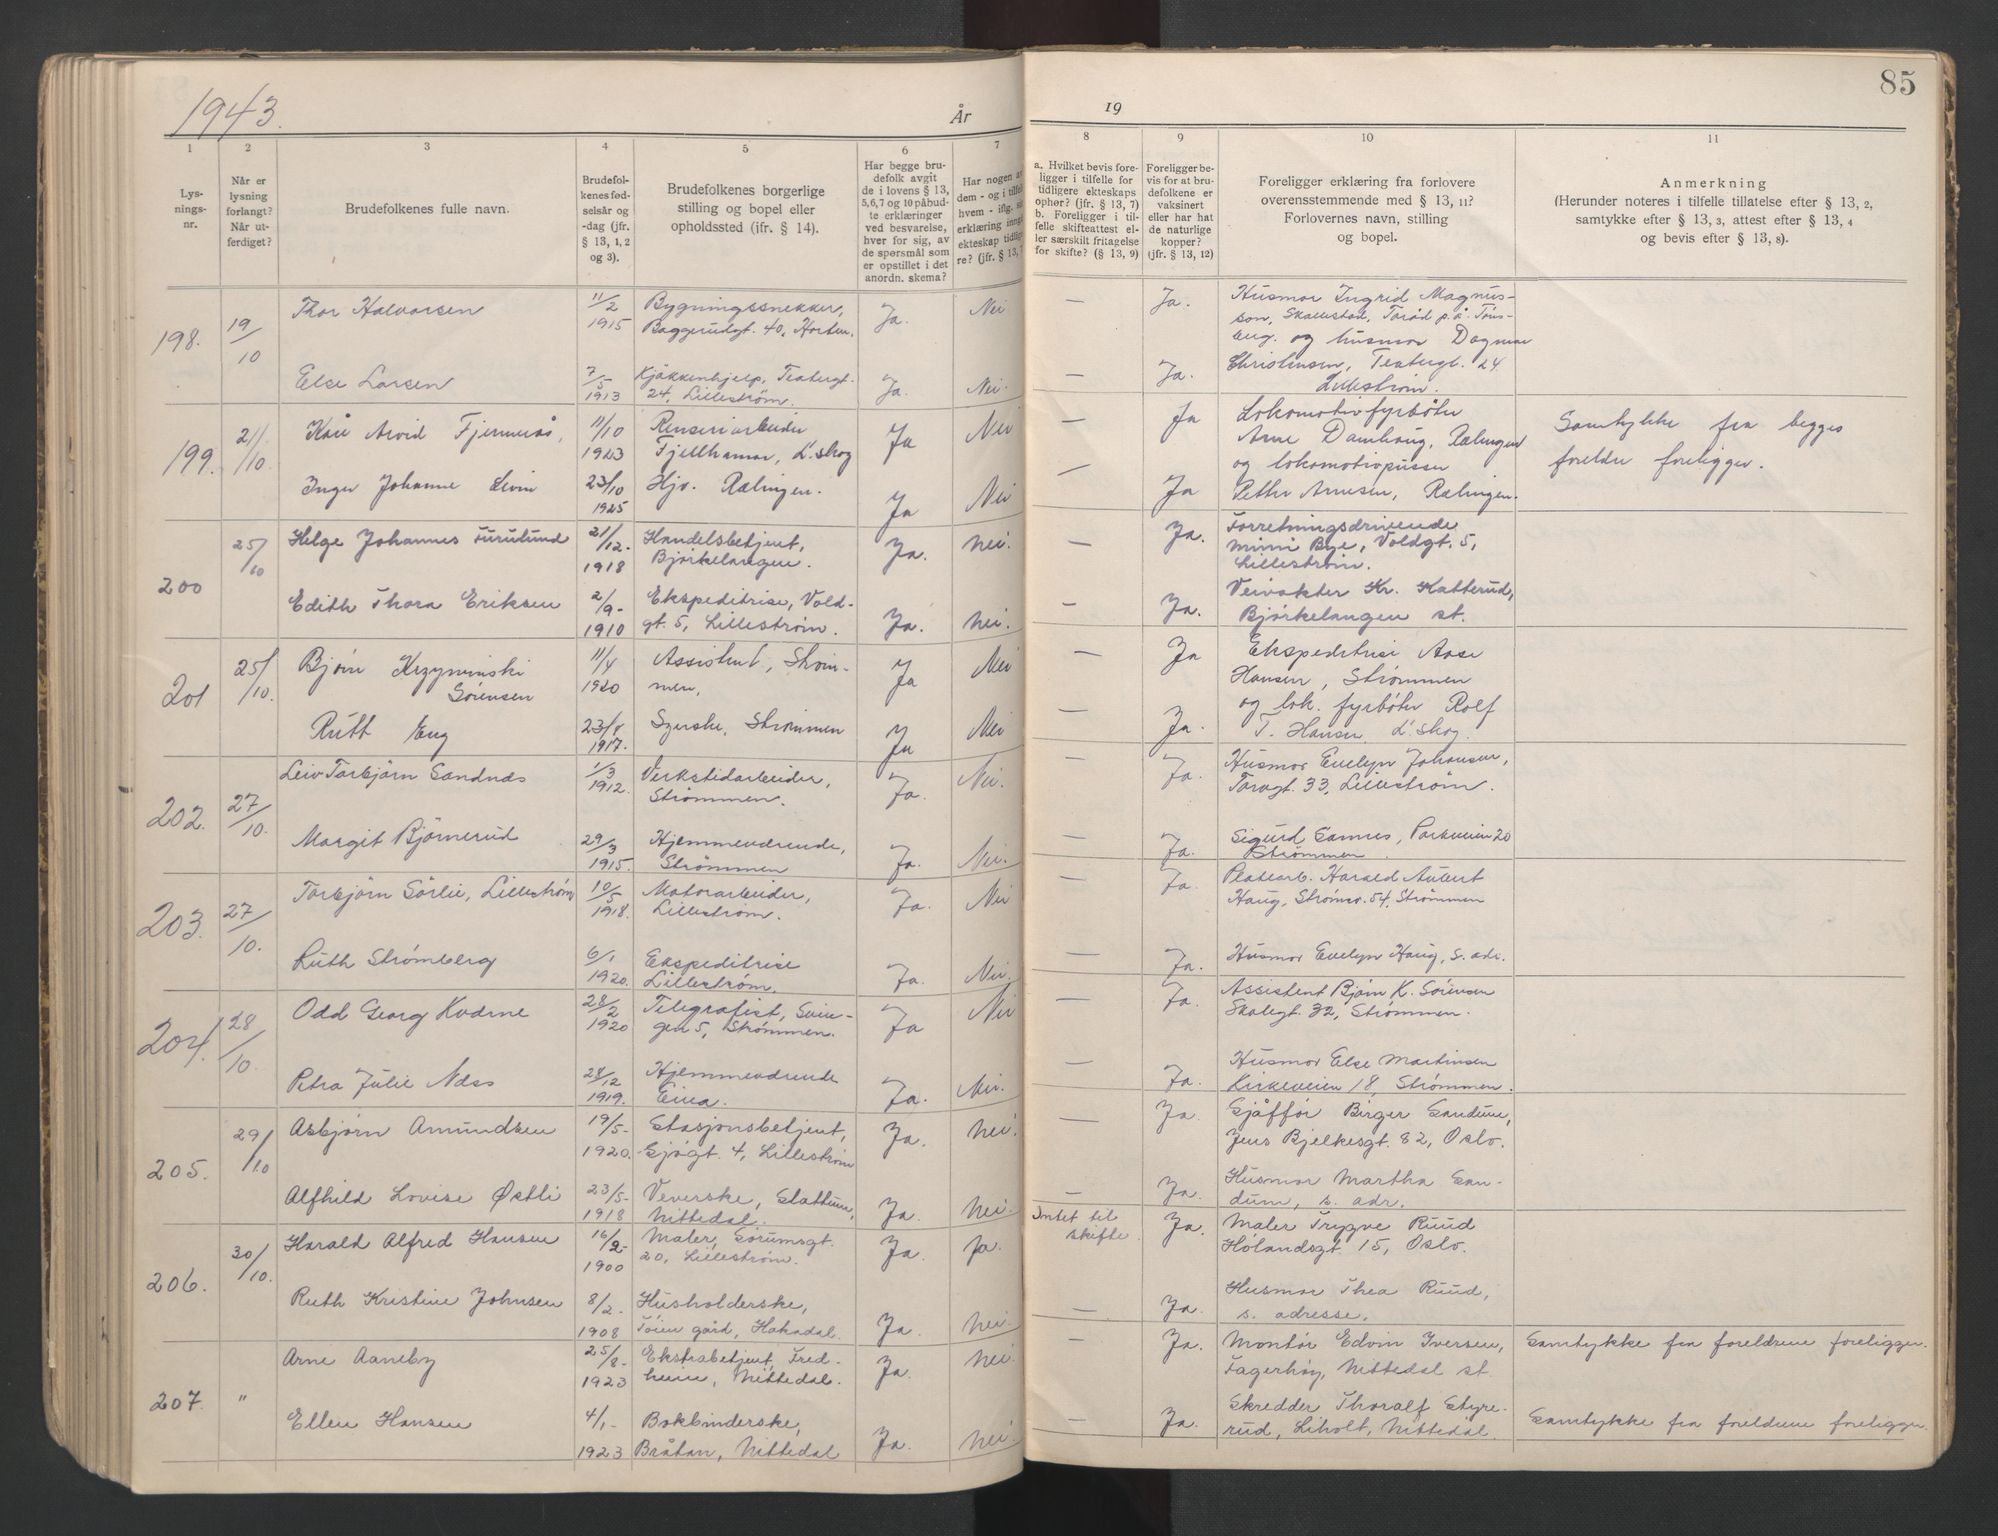 1943.
År
19
85
1
2
3
4
5
6
7
8
9
10
11
Lys-
nings-
nr.
Når er
lysning
forlangt?
Når ut-
ferdiget?
Brudefolkenes fulle navn.
Brudefol-
kenes fød-
selsår og
-dag (jfr.
§ 13, 1, 2
og 3).
Brudefolkenes borgerlige
stilling og bopel eller
opholdssted (jfr. § 14).
Har begge bru-
defolk avgit
de i lovens § 13,
5,6,7 og 10 påbud-
te erklæringer
ved besvarelse,
hver for sig, av
de spørsmål som
er opstillet i det
anordn. skema?
Har nogen av
dem - og i tilfel
hvem - iflg. si
erklæring inng
ekteskap tidlig
re? (jfr. § 13, 7
a. Hvilket bevis fore-
ligger i tilfelle for
tidligere ekteskaps
ophør? (jfr. § 13, 7)
b. Foreligger i til-
felle skifteattest el-
ler særskilt fritagelse
for skifte? (§ 13, 9)
Foreligger be-
vis for at bru-
defolkene er
vaksinert
eller har hat
de naturlige
kopper?
(jfr. § 13, 12)
Foreligger erklæring fra forlovere
overensstemmende med § 13, 11?
Forlovernes navn, stilling
og bopel.
Anmerkning
(Herunder noteres i tilfelle tillatelse efter § 13, 2,
samtykke efter § 13, 3, attest efter § 13, 4
og bevis efter § 13, 8).
198. 19/10 Thor Halvorsen 11/2 1915 Bygningssnekker, Ja. Nei — Ja. Husmor Ingrid Magnus-
Baggerudgt. 40, Horten. son, Skallestad, Torød p.å. Tøns-
berg. og husmor Dagmar
Else Larsen 7/5 1913 Kjøkkenhjelp, Teatergt. Ja. Nei. — Ja. Christensen, Teatergt. 24
24, Lillestrøm. Lillestrøm.
199. 21/10. Kåre Arvid Fjernerås, 11/10 1923 Renseriarbeider Ja Nei — Ja Lokomotivfyrbøter Samtykke fra begges
Fjellhamar, L.skog Arne Damhaug, Rælingen foreldre foreligger.
og lokomotivpusser
Inger Johanne Sivin 23/10 1925 Hjv. Rælingen. Ja Nei — Ja Petter Arnesen, Rælingen.
200 25/10 Helge Johannes Furulund 21/12- 1918 Handelsbetjent, Ja. nei. — Ja. Forretningsdrivende
Bjørkelangen. Mimi Bye, Voldgt. 5,
Lillestrøm.
Edith Thora Eriksen 2/9- 1910 Ekspeditrise, Vold- Ja. nei. — Ja. Veivokter Kr. Katterud,
gt. 5, Lillestrøm. Bjørkelangen st.
201 25/10. Bjørn Krzyminski 11/4 1920 Assistent, Strøm- Ja Nei — Ja Ekspeditrise Aase
Sørensen men. Hansen, Strømmen
og lok. fyrbøter Rolf
Ruth Eng 23/8 1917. Syerske, Strømmen Ja Nei — Ja. T. Hansen L.skog.
202. 27/10. Leiv Torbjørn Sandnæs 1/3 1912. Verkstedarbeider, Ja. Nei. — Ja. Husmor Evelyn Johansen,
Strømmen. Torvgt. 33, Lillestrøm.
Margit Bjørnerud 29/3 1915. Hjemmeværende, Ja. Nei. — Ja. Sigurd Sannes, Parkveien 20
Strømmen Strømmen.
203. 27/10. Torbjørn Sørlie, Lillestrøm 10/5 1918. Motorarbeider, Ja. Nei — Ja. Platearb. Harald Aubert
Lillestrøm. Haug, Strømsv. 54, Strømmen
Ruth Strømberg 6/1 1920. Ekspeditrise Ja. Nei. — Ja. Husmor Evelyn Haug, s. adr.
Lillestrøm.
204. 28/10. Odd Georg Kværne 28/2 1920 Telegrafist, Svin- Ja Nei — Ja. Assistent Bjørn K. Sørensen
gen 5, Strømmen. Skolegt. 32, Strømmen.
Petra Julie Næss 28/12 1919. Hjemmeværende Ja. Nei. — Ja. Husmor Else Martinsen
Eina. Kirkeveien 18, Strømmen.
205. 29/10 Asbjørn Amundsen 19/5- 1920. Stasjonsbetjent, Ja. nei. — Ja. Sjåffør Birger Sandum,
Sjøgt. 4, Lillestrøm Jens Bjelkesgt. 82, Oslo.
Alfhild Lovise Østli 23/5- 1918 Veverske, Slattum, Ja. nei. — Ja. Husmor Martha San-
Nittedal. dum, s. adr.
206. 30/10. Harald Alfred Hansen 16/2- 1900 Maler, Sørumsgt. Ja. ja. Intet til skifte. Ja. Maler Trygve Ruud
20, Lillestrøm. Hølandsgt. 15, Oslo.
Ruth Kristine Johnsen 8/2- 1908 Husholderske, Ja. nei. — Ja. Husmor Thea Ruud,
Tøien gård, Hakadal. s. adresse.
207. " Arne Aaneby 25/8- 1923 Ekstrabetjent, Fred- Ja. nei. — Ja. Montør Edvin Iversen, Samtykke fra foreldrene foreligger.
heim, Nittedal. Fagerhøy, Nittedal st.
Ellen Hansen 4/1- 1923 Bokbinderske, Ja. nei. — Ja. Skredder Thoralf Styre- Samtykke fra foreldrene foreligger.
Bråtan, Nittedal rud, Liholt, Nittedal.